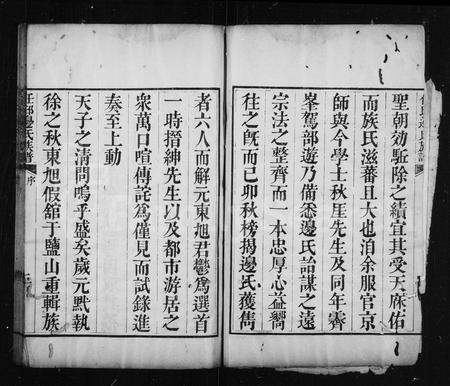 聖朝効駈除之績宜其受天庥佑
而族氏滋蕃且大也洎余服官京
師與今學士秋厓先生及同年霽
峯駕部遊乃備悉邊氏詒謀之遠
宗法之整齊而一本忠厚心益嚮
往之旣而己卯秋榜揭邊氏獲雋
者六人而解元東旭君欝爲選首
一時搢紳先生以及都市游居之
衆萬口喧傳詫爲僅見而試錄進
奏至上動
天子之淸問嗚乎盛矣歲元默執
徐之秋東旭假舘于鹽山重輯族
任邱邊氏族譜
序